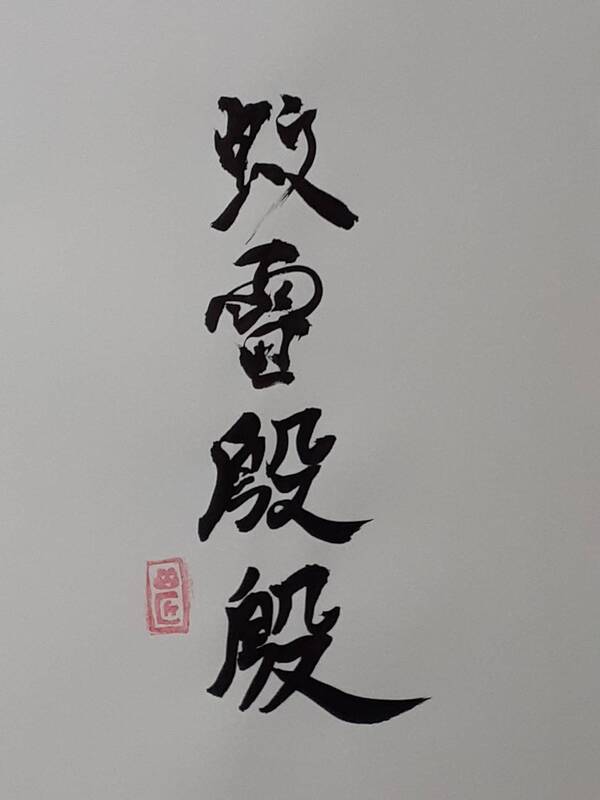 蚊雷殷殷